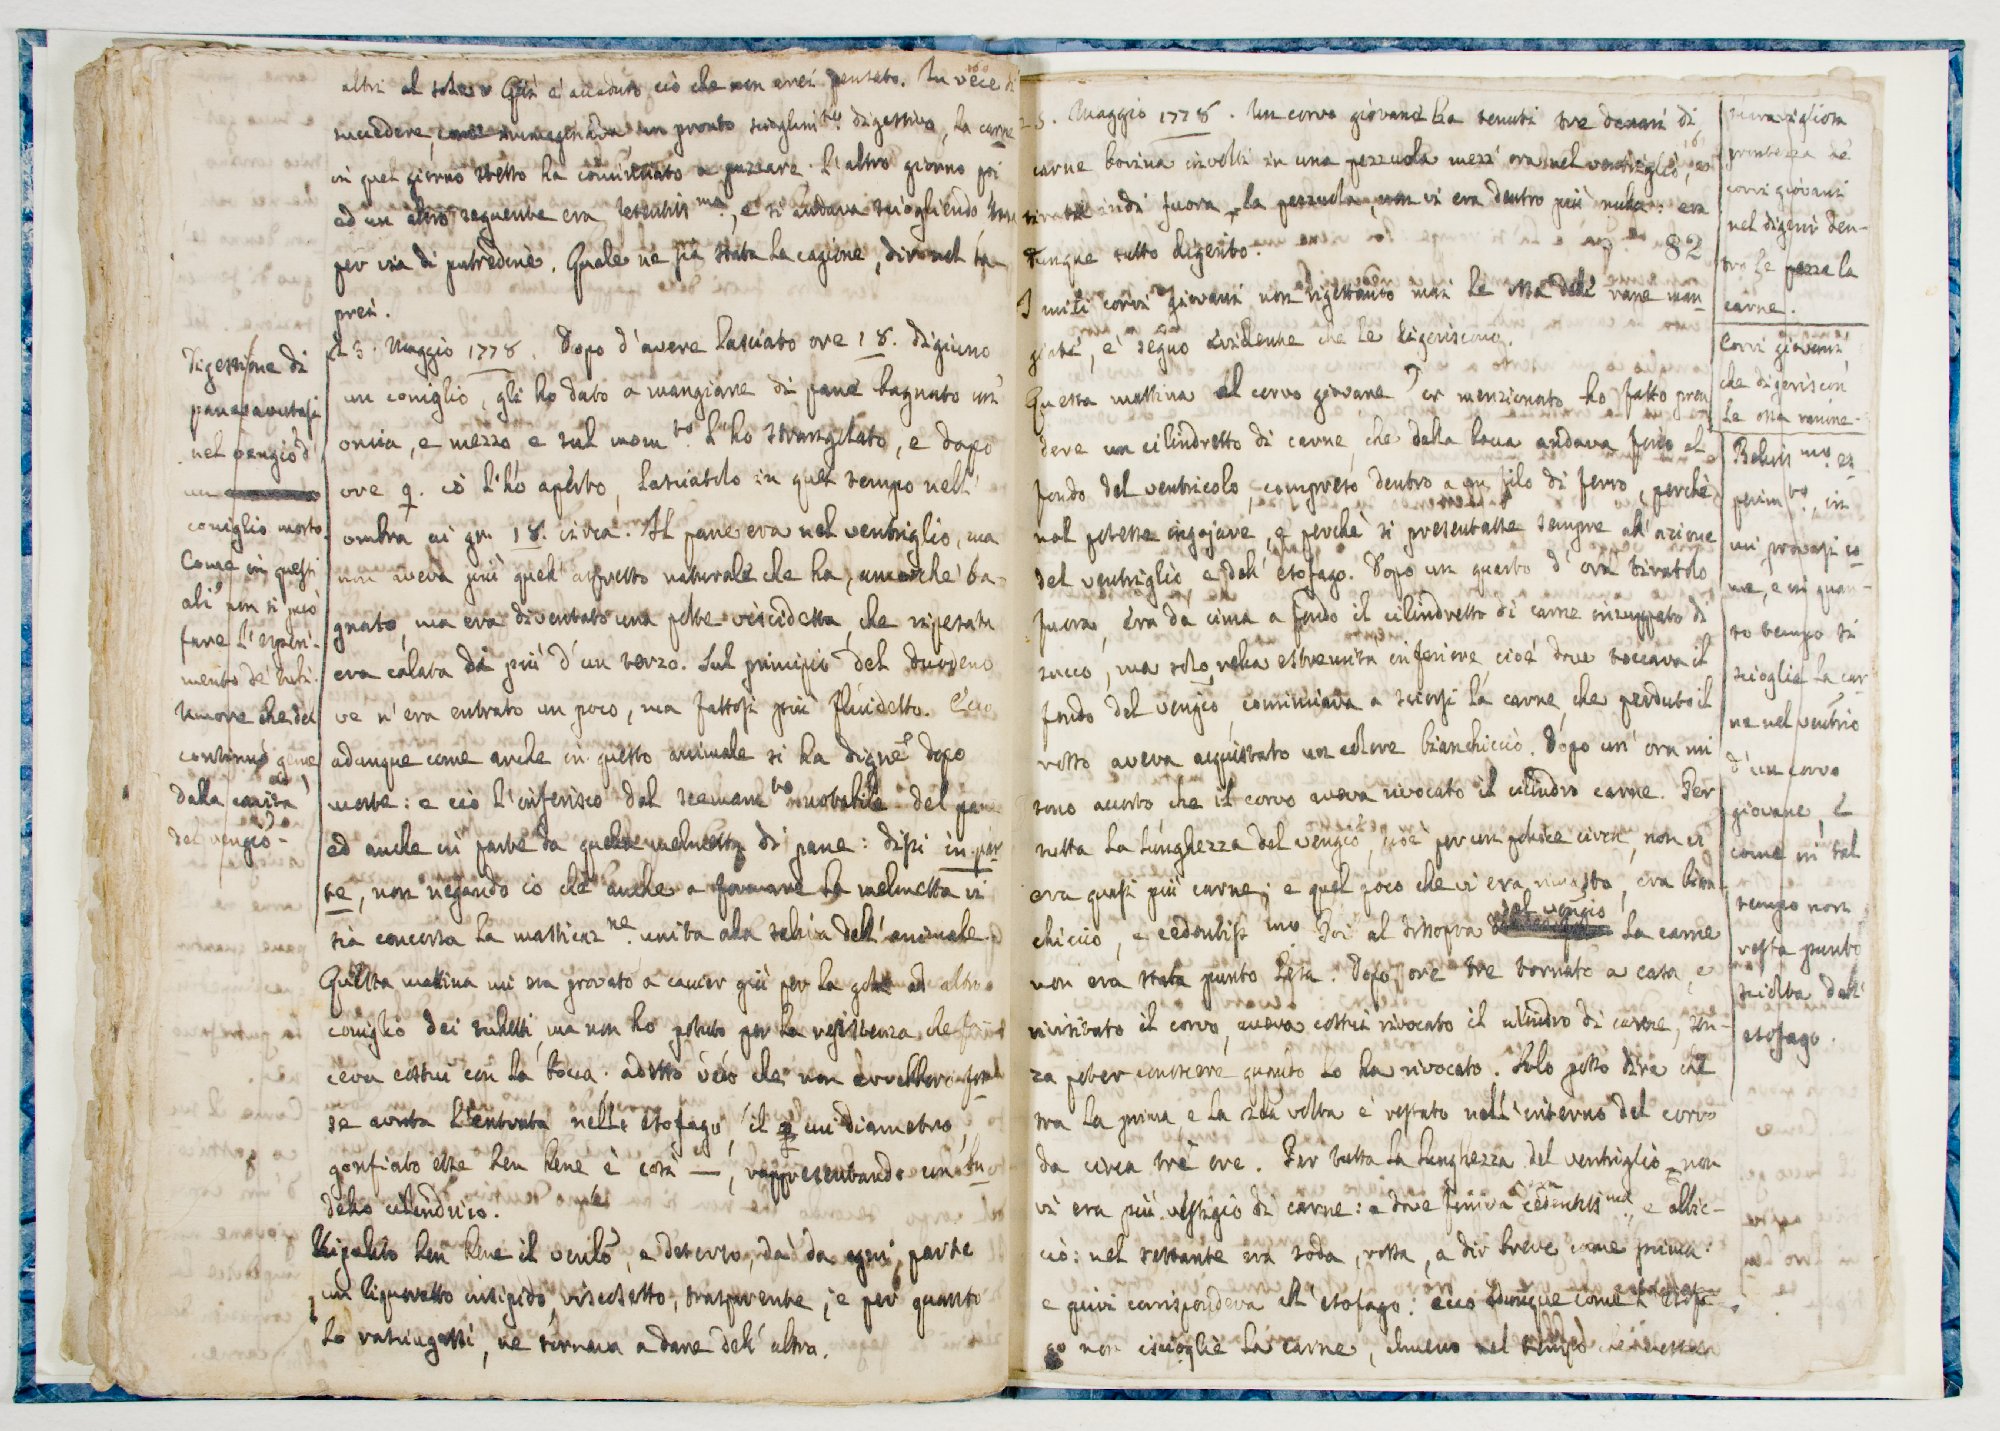 altri al sole. Quì è accaduto ciò che non avrei pensato. In vece di
succedere, come immaginava, un pronto scioglim.to digestivo, la carne
in quel giorno stesso ha cominciato a puzzare. L'altro giorno poi
ed un altro seguente era fetentiss.ma, e si andava sciogliendo, ma
per via di putredine. Quale ne sia stata la cagione, dirò nel
presi.
23. Maggio 1778. Dopo d'avere lasciato ore 18. digiuno
un coniglio, gli ho dato a mangiare di pane bagnato un'
oncia, e mezzo e sul mom.to l'ho strangolato, e dopo
ore 9. io l'ho aperto, lasciatolo in quel tempo nell'
ombra ai gr. 18. circa. Il pane era nel ventriglio, ma
non aveva più quell'aspetto naturale che ha, ancorchè ba-
gnato, ma era diventato una polte viscidetta, che ripesata
era calata di più d'un terzo. Sul principio del duodeno
ve n'era entrato un poco, ma fattosi più fluidetto. Ecco
adunque come anche in questo animale si ha digne dopo
morte: e ciò l'inferisco dal scemam.to notabile del pane
ed anche in parte da quella melmetta di pane: dissi in par-
te, non negando io che anche a formare la melmetta vi
sia concorsa la masticaz.ne unita alla saliva dell'animale.
Questa mattina mi era provato a cacciar giù per la gola ad altro
coniglio dei tubetti, ma non ho potuto per la resistenza che fa
ceva costui con la bocca. Adesso veggo che non avrebbero
se avuta l'entrata nell'esofago, il cui diametro,
gonfiato esse ben bene è così —, rappresentando un bu-
dello cilindrico.
Ripulito ben bene il ventlo, e deterso, dà da ogni parte
un liquoretto insipido, viscosetto, trasparente, e per quanto
lo rasciugassi, ne tornava a dare dell'altro.
Digestione di
pane avutasi
nel vengio d'
un
coniglio morto.
Come in questi
ali non si può
fare l'esperi-
mento de' tubi.
Umore che del
continuo geme
dalla cavità
del vengio.
25. Maggio 1778. Un corvo giovane ha tenuti tre denari di
carne bovina involti in una pezzuola mezz'ora nel ventriglio, e
tirata indi fuora la pezzuola, non vi era dentro più nulla: era
dunque tutto digerito.
82
I miei corvi giovani non rigettando mai le ossa delle rane man-
giate, è segno evidente che le digeriscono.
Questa mattina al corvo giovane or menzionato ho fatto pren-
dere un cilindretto di carne, che dalla bocca andava fino al
fondo del ventricolo, compreso dentro a un filo di ferro, perchè
nol potesse ingojare, e perchè si presentasse sempre all'azione
del ventriglio e dell'esofago. Dopo un quarto d'ora tiratolo
fuora, era da cima a fondo il cilindretto di carne inzuppato di
succo, ma solo nella estremità inferiore, cioè dove toccava il
fondo del vengio, cominciava a sciorsi la carne, che perduto il
rosso aveva acquistato un colore bianchiccio. Dopo un'ora mi
sono accorto che il corvo aveva rivocato il cilindro carne. Per
tutta la lunghezza del vengio, cioè per un police circa, non vi
era quasi più carne; e quel poco che vi era rimasto, era bian-
chiccio, e cedentiss.mo. Poi al dissopra del vengio la carne
non era stata punto lesa. Dopo ore tre tornato a casa, e
rivisitato il corvo, aveva costui rivocato il cilindro di carne, sen-
za poter conoscere quando lo ha rivocato. Solo posso dire che
tra la prima, e la 2da volta è restato nell'interno del corvo
da circa tre ore. Per tutta la lunghezza del ventriglio non
vi era più vestigio di carne: e dove finiva cedentiss.ma, e albic-
cio: nel restante era soda, rossa, a dir breve come prima:
e quivi corrispondeva all'esofago: ecco dunque come l'esofa-
go non iscioglie la carne, almeno nel tempo
Maravigliosa
prontezza de'
corvi giovani
nel digerir den-
tro le pezze la
carne.
Corvi giovani
che digeriscon
le ossa ranine.
Beliss.mo es-
perim.to, in
cui provasi co-
me, e in quan-
to tempo si
scioglie la car-
ne nel ventrio
d'un corvo
giovane, e
come in tal
tempo non
resta punto
sciolta dall'
esofago.